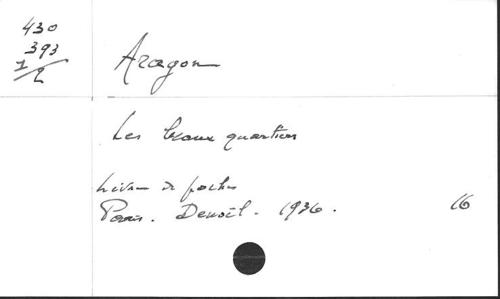 430
393
1/2
Aragon
Les beaux quartiers
Livre de poche
Paris. Denoël. 1936. 16